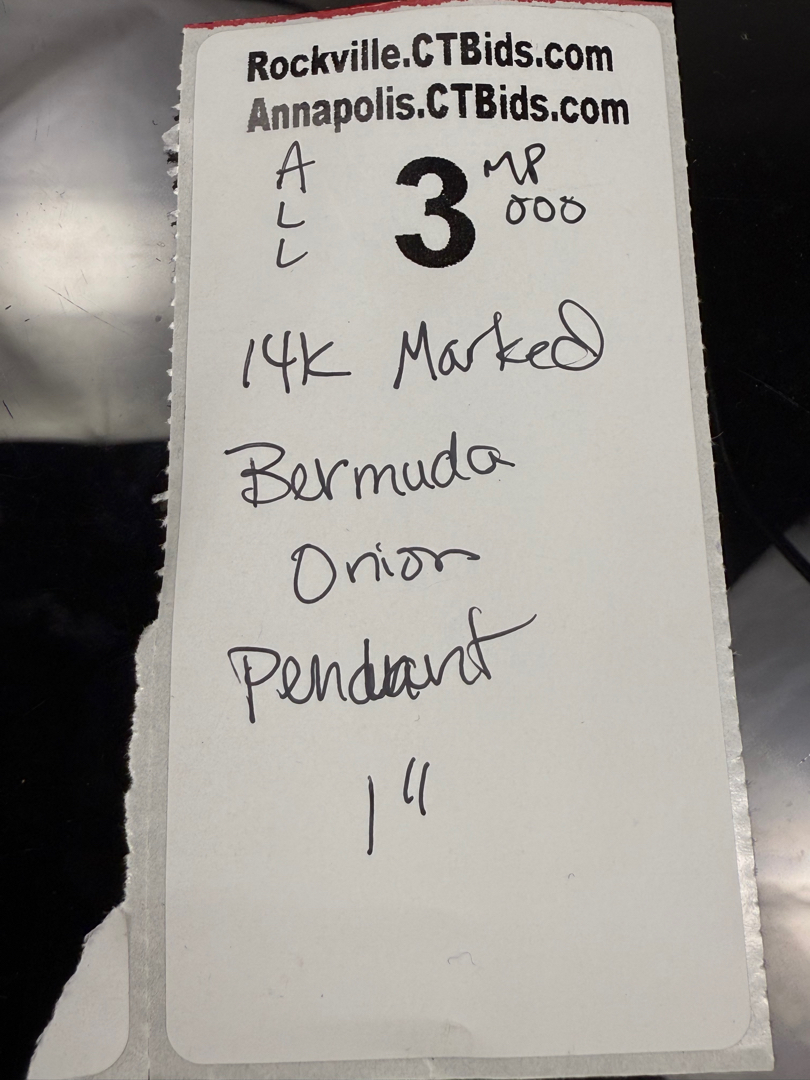 Rockville.CTBids.com
Annapolis.CTBids.com
ALL 3 MP
000
14K Marked
Bermuda
Onion
Pendant
1"